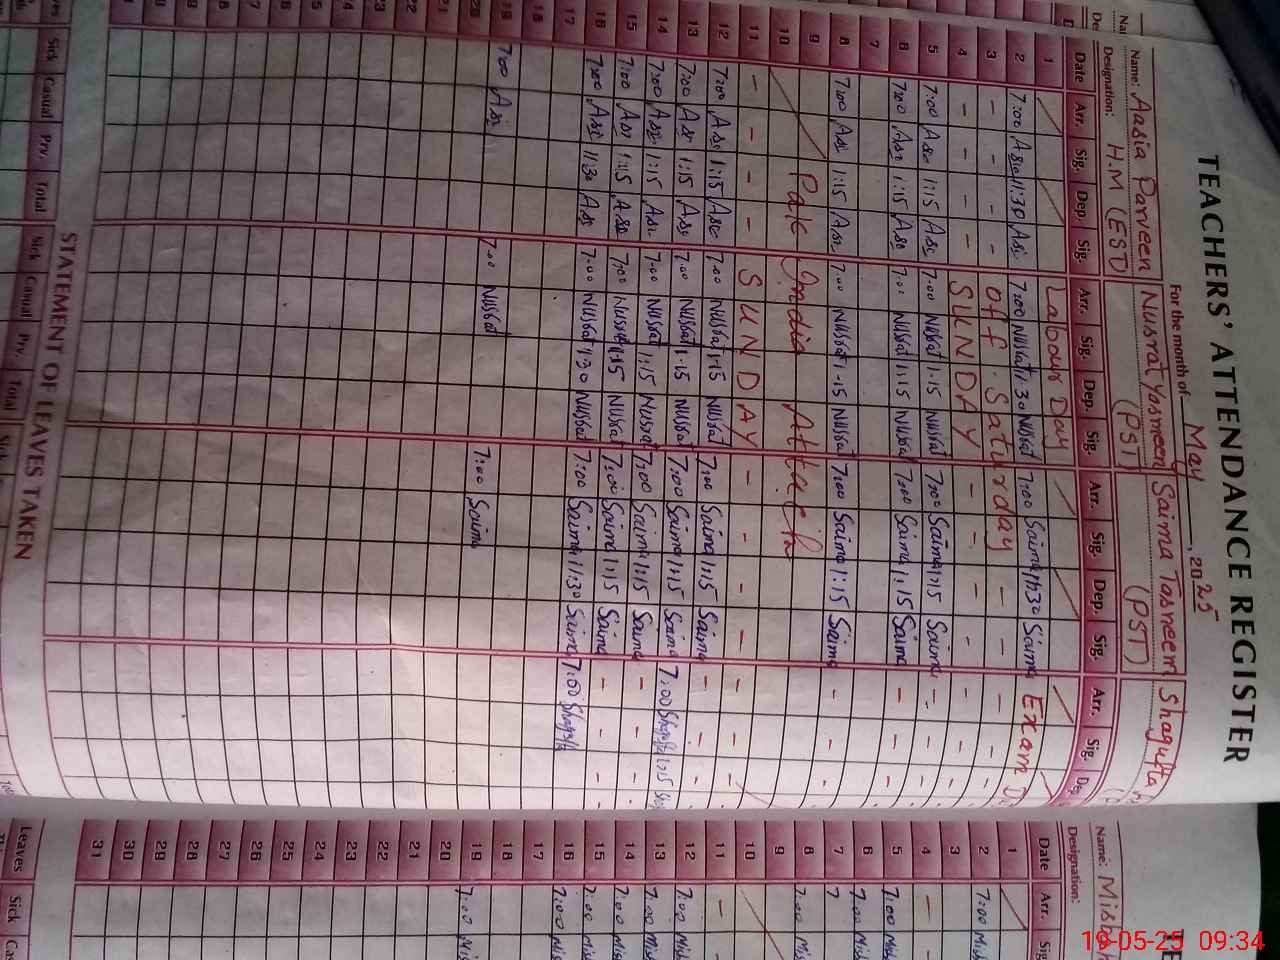 TEACHERS' ATTENDANCE REGISTER
For the month of May, 2025
Name: Aasia Parveen Nusrat Yasmeen Saima Tasneem Shagufta
Designation: H.M (ESD) (PST) (PST)
Date Arr. Sig. Dep. Sig. Arr. Sig. Dep. Sig. Arr. Sig. Dep. Sig. Arr. Sig. Dep.
1 Labour Day
2 7:00 Asi 11:30 Asi 7:00 Nussat 11:30 Nussat 7:00 Saima 11:30 Saima Exam
3 - - - - Off Saturday - - - - -
4 - - - - SUNDAY - - - - - - -
5 7:00 Asi 1:15 Asi 7:00 Nussat 1:15 Nussat 7:00 Saima 1:15 Saima - - -
6 7:00 Asi 1:15 Asi 7:00 Nussat 1:15 Nussat 7:00 Saima 1:15 Saima - - -
7
8 7:00 Asi 1:15 Asi 7:00 Nussat 1:15 Nussat 7:00 Saima 1:15 Saima - - -
9
10 Pak India Attack
11 - - - - SUNDAY - - - - - - -
12 7:00 Asi 1:15 Asi 7:00 Nussat 1:15 Nussat 7:00 Saima 1:15 Saima - - -
13 7:00 Asi 1:15 Asi 7:00 Nussat 1:15 Nussat 7:00 Saima 1:15 Saima 7:00 Shagufta 1:15
14 7:00 Asi 1:15 Asi 7:00 Nussat 1:15 Nussat 7:00 Saima 1:15 Saima - - -
15 7:00 Asi 1:15 Asi 7:00 Nussat 1:15 Nussat 7:00 Saima 1:15 Saima - - -
16 7:00 Asi 11:30 Asi 7:00 Nussat 11:30 Nussat 7:00 Saima 11:30 Saima 7:00 Shagufta
17
18
19 7:00 Asi 7:00 Nussat 7:00 Saima
20
21
22
23
24
25
26
27
28
STATEMENT OF LEAVES TAKEN
Sick Casual Prv. Total Sick Casual Prv. Total
Name: Misbah
Designation:
Date Arr. Sig.
1
2 7:00 Mish
3
4 -
5 7:00 Mish
6 7:00 Mish
7 7
8 7:00 Mis
9
10
11 -
12 7:00 Mish
13 7:00 Mish
14 7:00 Mis
15 7:00 Mis
16 7:00 Mis
17
18
19 7:00 Mis
20
21
22
23
24
25
26
27
28
29
30
31
Leaves Sick
19-05-25 09:34